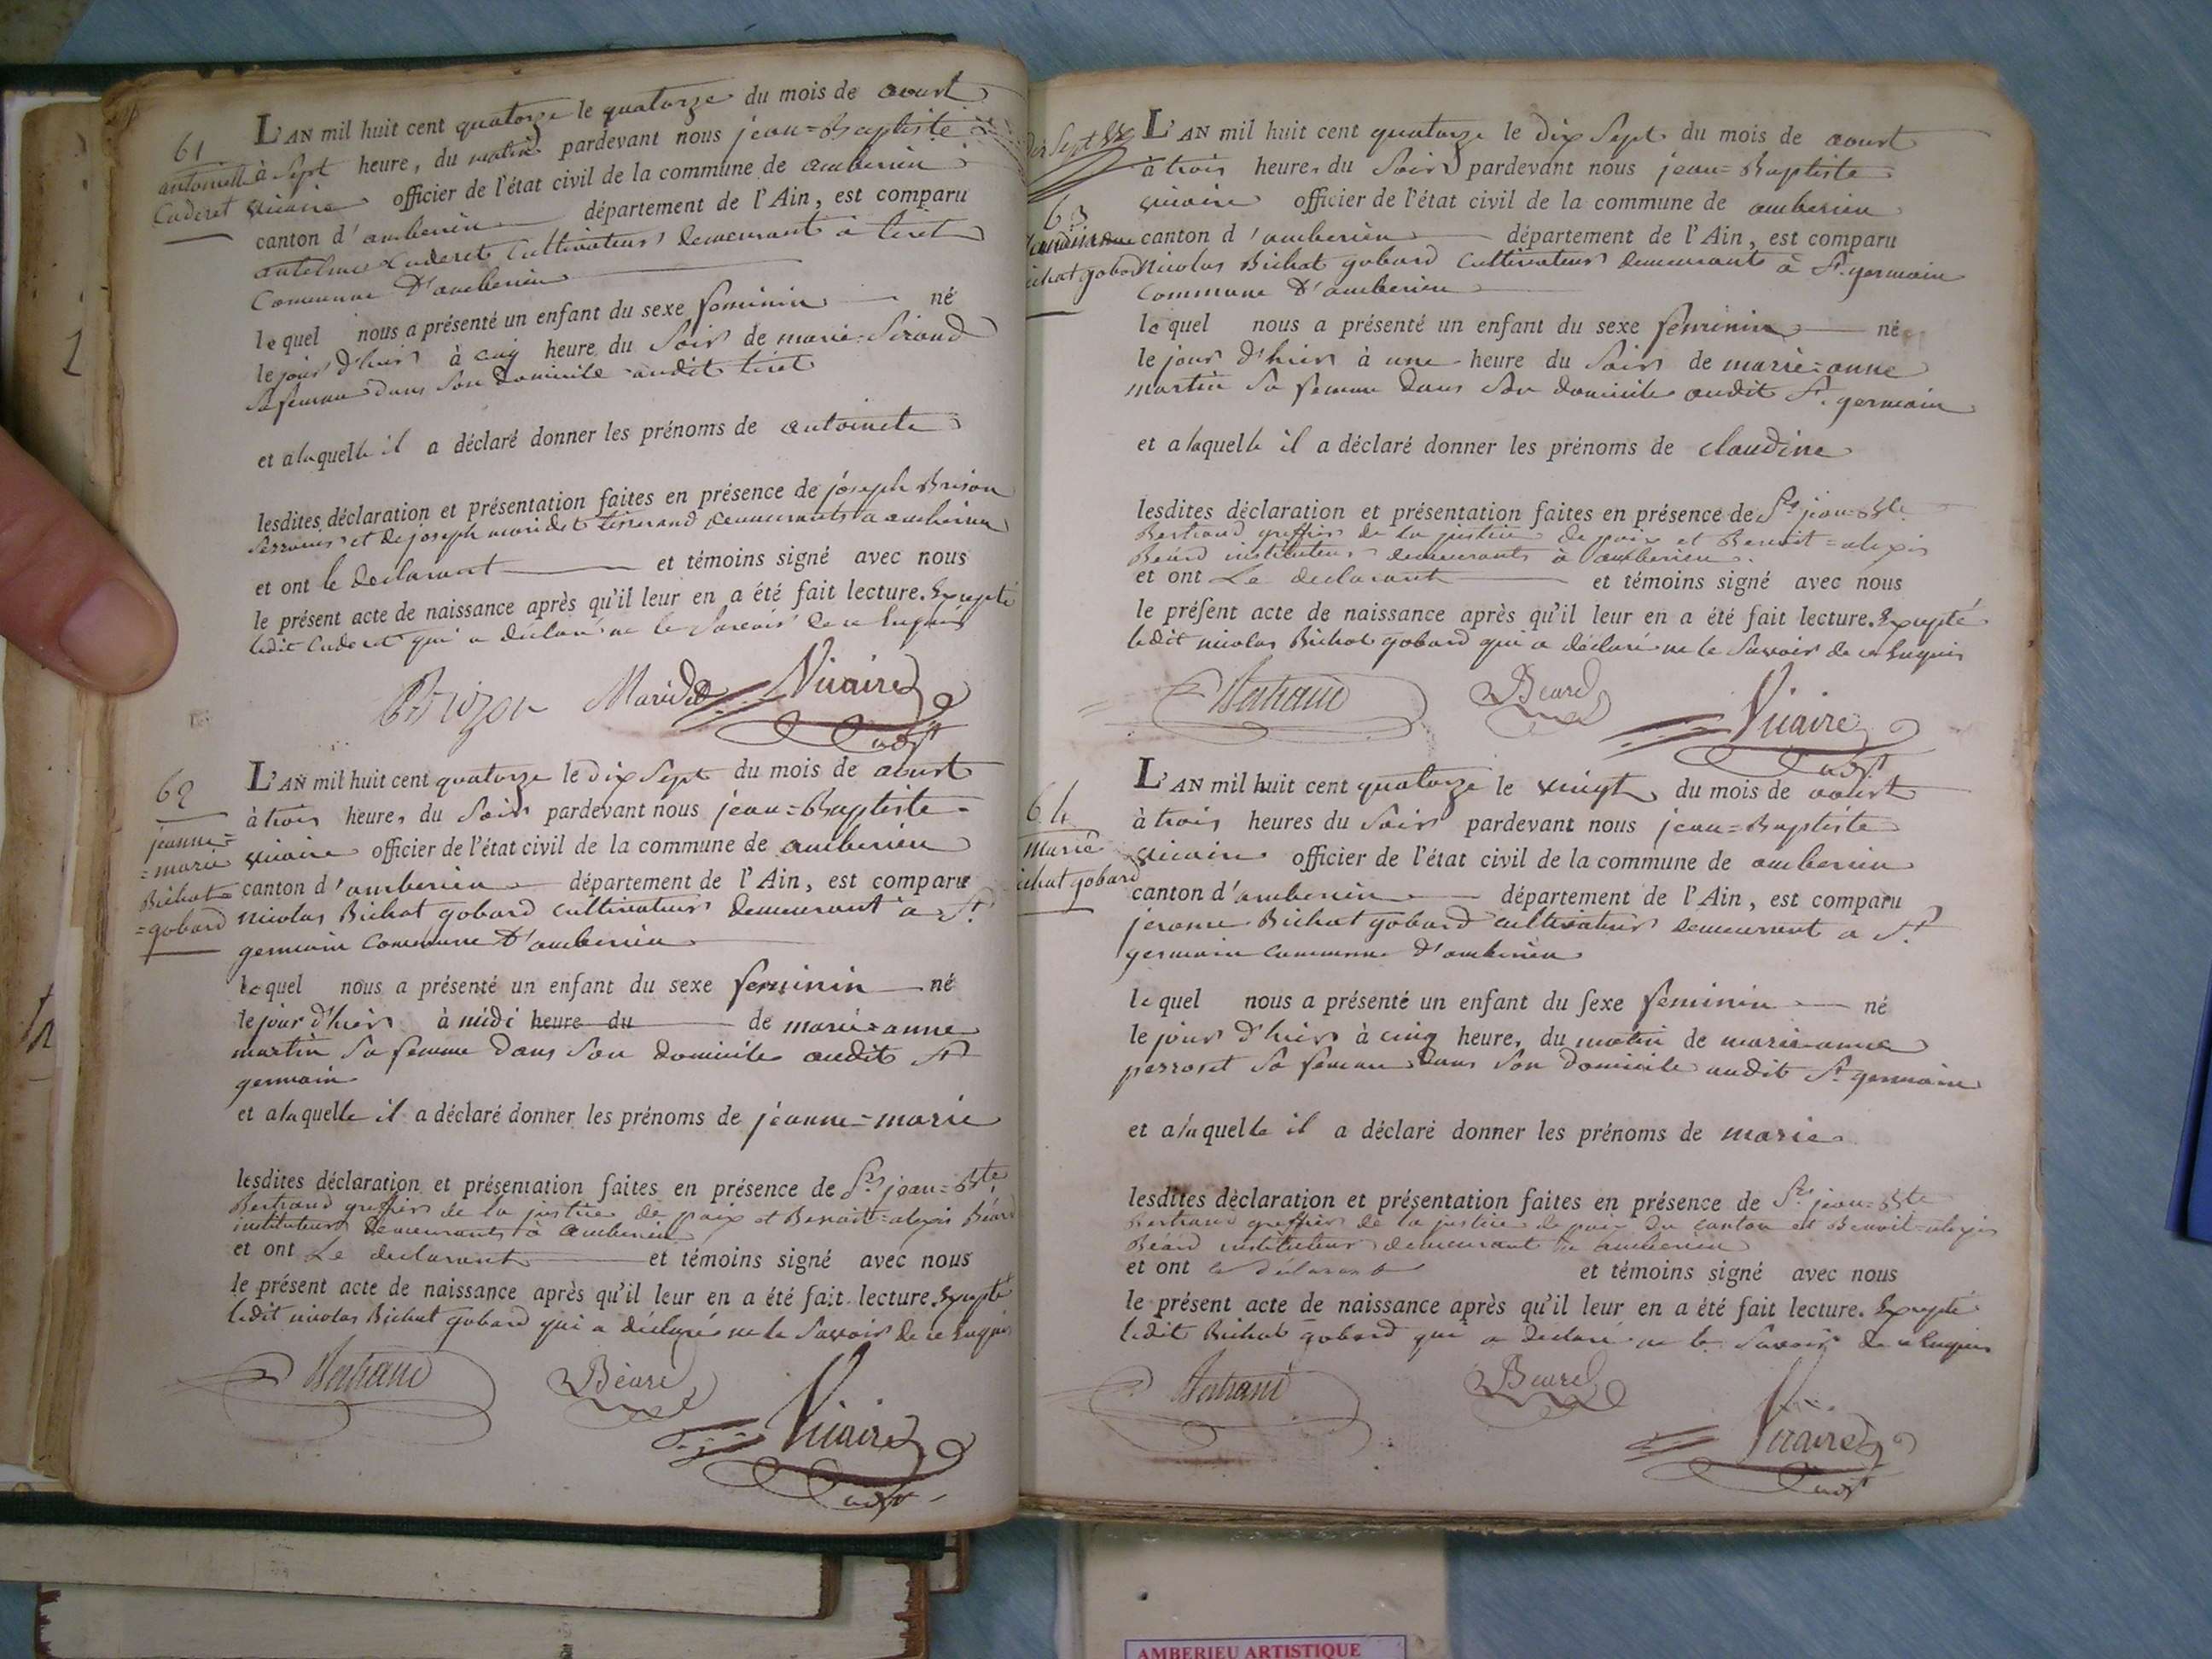 61
antoinette
Cuderet
L'AN mil huit cent quatorze le quatorze du mois de aoust
à sept heure, du matin pardevant nous jean=Baptiste
vicaire officier de l'état civil de la commune de amberieu
canton d'amberieu département de l'Ain, est comparu
antelme Cuderet cultivateur demeurant à tiret
Commune d'amberieu
lequel nous a présenté un enfant du sexe feminin né
le jour d'hier à cinq heure du soir de marie Siraud
sa femme dans son domicile audit tiret
et a laquelle il a déclaré donner les prénoms de antoinete
lesdites déclaration et présentation faites en présence de joseph Brison
et de joseph maridet tisserand demeurants a amberieu
et ont le declarant et témoins signé avec nous
le présent acte de naissance après qu'il leur en a été fait lecture. Excepté
ledit Cuderet qui a déclaré ne le savoir de ce enquis
Brizon Maridet Vicaire adjt
62
jeanne=
=marie
Bichat
=gobard
L'AN mil huit cent quatorze le dix sept du mois de aoust
à trois heures du soir pardevant nous jean=Baptiste
vicaire officier de l'état civil de la commune de amberieu
canton d'amberieu département de l'Ain, est comparu
nicolas Bichat gobard cultivateur demeurant à St.
germain commune d'amberieu
lequel nous a présenté un enfant du sexe feminin né
le jour d'hier à midi heure du de marie=anne
martin sa femme dans son domicile audit St
germain
et a laquelle il a déclaré donner les prénoms de jeanne=marie
lesdites déclaration et présentation faites en présence de Srs jean=Bte
Bertrand greffier de la justice de paix et Benoit=alexis Béard
instituteur demeurants à amberieu
et ont Le declarant et témoins signé avec nous
le présent acte de naissance après qu'il leur en a été fait lecture. Excepté
ledit nicolas Bichat gobard qui a déclaré ne le savoir de ce enquis
Bertrand Béard Vicaire adjt
63
Claudine
Bichat gobard
L'AN mil huit cent quatorze le dix sept du mois de aoust
à trois heures du soir pardevant nous jean=Baptiste
vicaire officier de l'état civil de la commune de amberieu
canton d'amberieu département de l'Ain, est comparu
Nicolas Bichat gobard cultivateur demeurant à St. germain
commune d'amberieu
lequel nous a présenté un enfant du sexe feminin né
le jour d'hier à une heure du soir de marie=anne
martin sa femme dans son domicile audit St. germain
et a laquelle il a déclaré donner les prénoms de claudine
lesdites déclaration et présentation faites en présence de Srs jean=Bte
Bertrand greffier de la justice de paix et Benoit=alexis
Béard instituteur demeurants à amberieu.
et ont Le declarant et témoins signé avec nous
le présent acte de naissance après qu'il leur en a été fait lecture. Excepté
ledit nicolas Bichat gobard qui a déclaré ne le savoir de ce enquis
Bertrand Béard Vicaire adjt
64
marie
Bichat gobard
L'AN mil huit cent quatorze le vingt du mois de aoust
à trois heures du soir pardevant nous jean=Baptiste
vicaire officier de l'état civil de la commune de amberieu
canton d'amberieu département de l'Ain, est comparu
jerome Bichat gobard cultivateur demeurant a St.
germain commune d'amberieu
lequel nous a présenté un enfant du sexe feminin né
le jour d'hier à cinq heure, du matin de marie anne
perroset sa femme dans son domicile audit St germain
et a laquelle il a déclaré donner les prénoms de marie
lesdites déclaration et présentation faites en présence de Srs jean=Bte
Bertrand greffier de la justice de paix du canton et Benoit=alexis
Béard instituteur demeurant à amberieu
et ont le declarant et témoins signé avec nous
le présent acte de naissance après qu'il leur en a été fait lecture. Excepté
ledit Bichat gobard qui a declaré ne le savoir de ce enquis
Bertrand Béard Vicaire adjt
AMBERIEU ARTISTIQUE